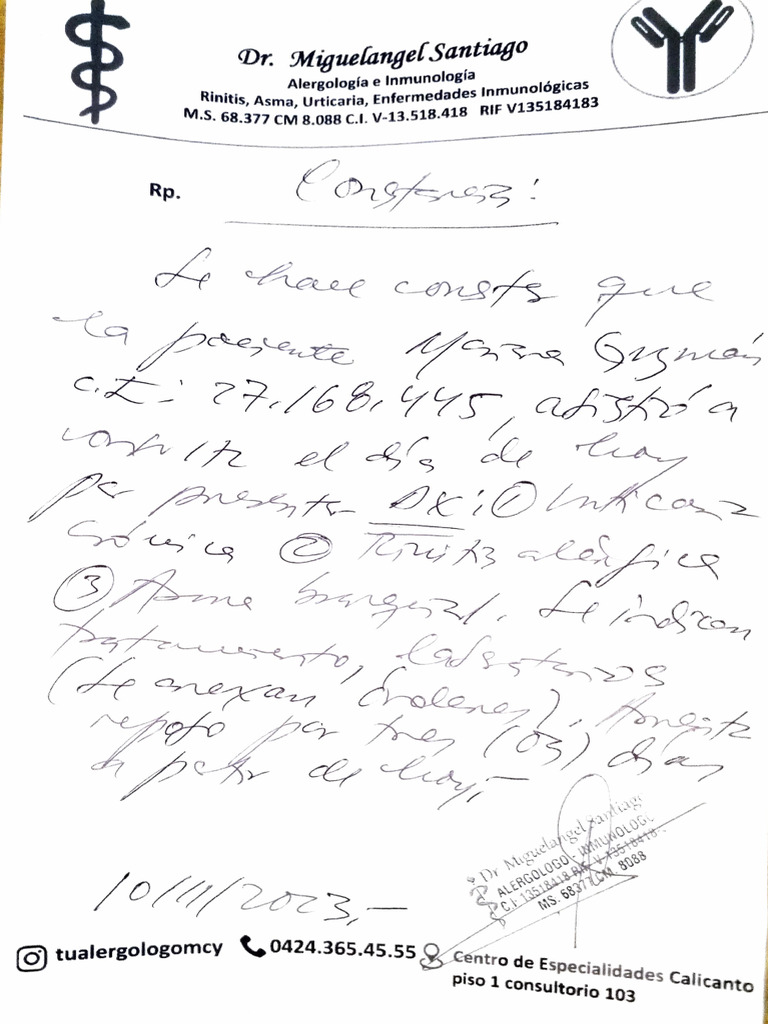 Dr. Miguelangel Santiago
Alergología e Inmunología
Rinitis, Asma, Urticaria, Enfermedades Inmunológicas
M.S. 68.377 CM 8.088 C.I. V-13.518.418 RIF V135184183
Rp.
Constancia:
Se hace constar que
la paciente Guzmán
C.I: 27.168.445, asistió a
consulta el día de hoy
por presentar DX: ① Urticaria
crónica ② Rinitis alérgica
③ Asma bronquial. Se indican
tratamiento, laboratorios
(Se anexan órdenes). Amerita
reposo por tres (03) días
a partir de hoy.-
10/11/2023.-
Dr. Miguelangel Santiago
ALERGOLOGO - INMUNOLOGO
C.I. 13518418 RIF. V-13518418-
MS. 68377 CM. 8088
tualergologomcy 0424.365.45.55 Centro de Especialidades Calicanto
piso 1 consultorio 103